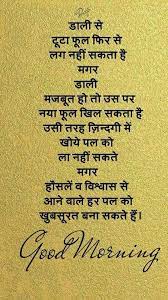 डाली से
टूटा फूल फिर से
लग नहीं सकता है
मगर
डाली
मजबूत हो तो उस पर
नया फूल खिल सकता है
उसी तरह ज़िन्दगी में
खोये पल को
ला नहीं सकते
मगर
हौसलें व विश्वास से
आने वाले हर पल को
खुबसूरत बना सकते हैं।
Good Morning